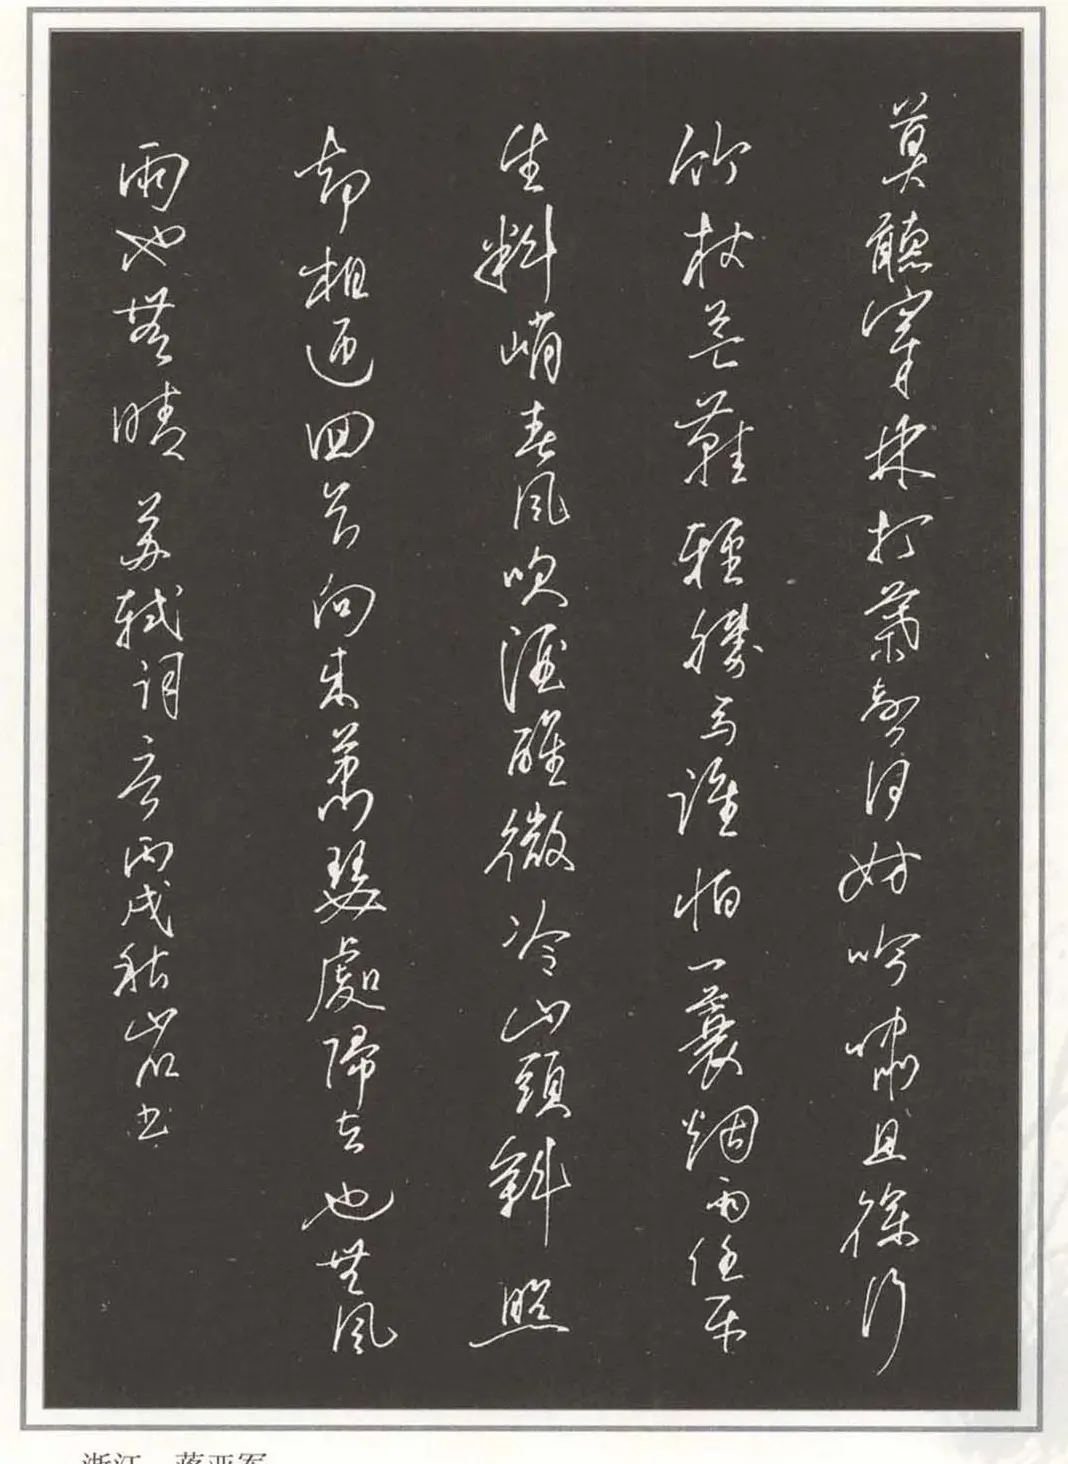 莫聽穿林打葉聲何妨吟嘯且徐行
竹杖芒鞋輕勝馬誰怕一蓑烟雨任平
生料峭春風吹酒醒微冷山頭斜照
却相迎回首向来蕭瑟處歸去也無風
雨也無晴 苏轼词 丙戌秋岩书
浙江 蒋亚军